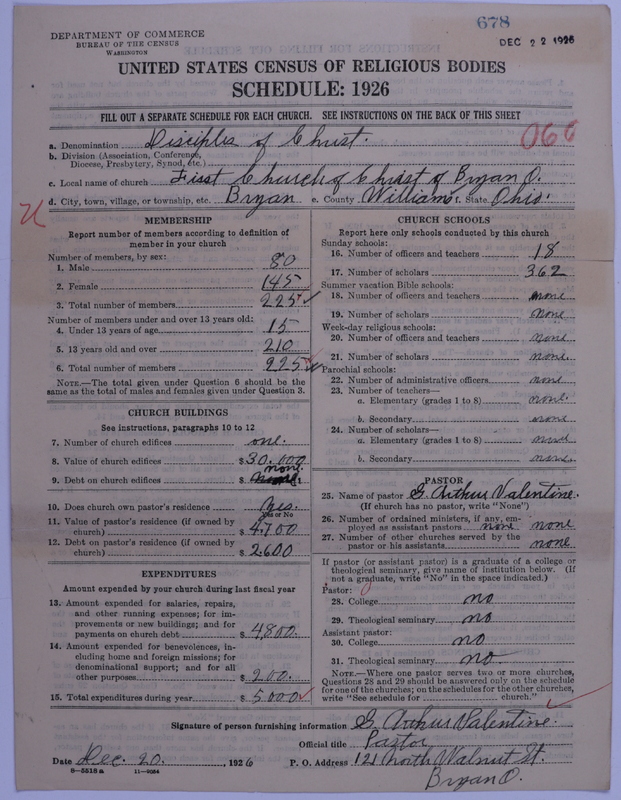 678
DEPARTMENT OF COMMERCE
BUREAU OF THE CENSUS
WASHINGTON
DEC 22 1926
UNITED STATES CENSUS OF RELIGIOUS BODIES
SCHEDULE: 1926
FILL OUT A SEPARATE SCHEDULE FOR EACH CHURCH. SEE INSTRUCTIONS ON THE BACK OF THIS SHEET
a. Denomination Disciples of Christ.
b. Division (Association, Conference, Diocese, Presbytery, Synod, etc.)
c. Local name of church First Church of Christ of Bryan O.
d. City, town, village, or township, etc. Bryan e. County Williams f. State Ohio.
MEMBERSHIP
Report number of members according to definition of
member in your church
Number of members, by sex:
1. Male 80
2. Female 145
3. Total number of members 225
Number of members under and over 13 years old:
4. Under 13 years of age 15
5. 13 years old and over 210
6. Total number of members 225
NOTE.—The total given under Question 6 should be the
same as the total of males and females given under Question 3.
CHURCH BUILDINGS
See instructions, paragraphs 10 to 12
7. Number of church edifices one.
8. Value of church edifices $30.000
9. Debt on church edifices $ none
10. Does church own pastor's residence? Yes.
Yes or No
11. Value of pastor's residence (if owned by
church) $4.700
12. Debt on pastor's residence (if owned by
church) $2.600
EXPENDITURES
Amount expended by your church during last fiscal year
13. Amount expended for salaries, repairs,
and other running expenses; for im-
provements or new buildings; and for
payments on church debt $4,800.
14. Amount expended for benevolences, in-
cluding home and foreign missions; for
denominational support; and for all
other purposes $200.
15. Total expenditures during year $5000
CHURCH SCHOOLS
Report here only schools conducted by this church
Sunday schools:
16. Number of officers and teachers 18
17. Number of scholars 362
Summer vacation Bible schools:
18. Number of officers and teachers none
19. Number of scholars none
Week-day religious schools:
20. Number of officers and teachers none
21. Number of scholars none.
Parochial schools:
22. Number of administrative officers none
23. Number of teachers—
a. Elementary (grades 1 to 8) none.
b. Secondary none
24. Number of scholars—
a. Elementary (grades 1 to 8) none
b. Secondary none.
PASTOR
25. Name of pastor G. Arthur Valentine.
(If church has no pastor, write "None")
26. Number of ordained ministers, if any, em-
ployed as assistant pastors none none
27. Number of other churches served by the
pastor or his assistants none
If pastor (or assistant pastor) is a graduate of a college or
theological seminary, give name of institution below. (If
not a graduate, write "No" in the space indicated.)
Pastor:
28. College no
29. Theological seminary no
Assistant pastor:
30. College no
31. Theological seminary no
NOTE.—Where one pastor serves two or more churches,
Questions 28 and 29 should be answered only on the schedule
for one of the churches; on the schedules for the other churches,
write "See schedule for church."
Signature of person furnishing information G. Arthur Valentine.
Official title Pastor
Date Dec. 20, 1926 P. O. Address 121 North Walnut St.
8-5518a 11-9054
Bryan O.